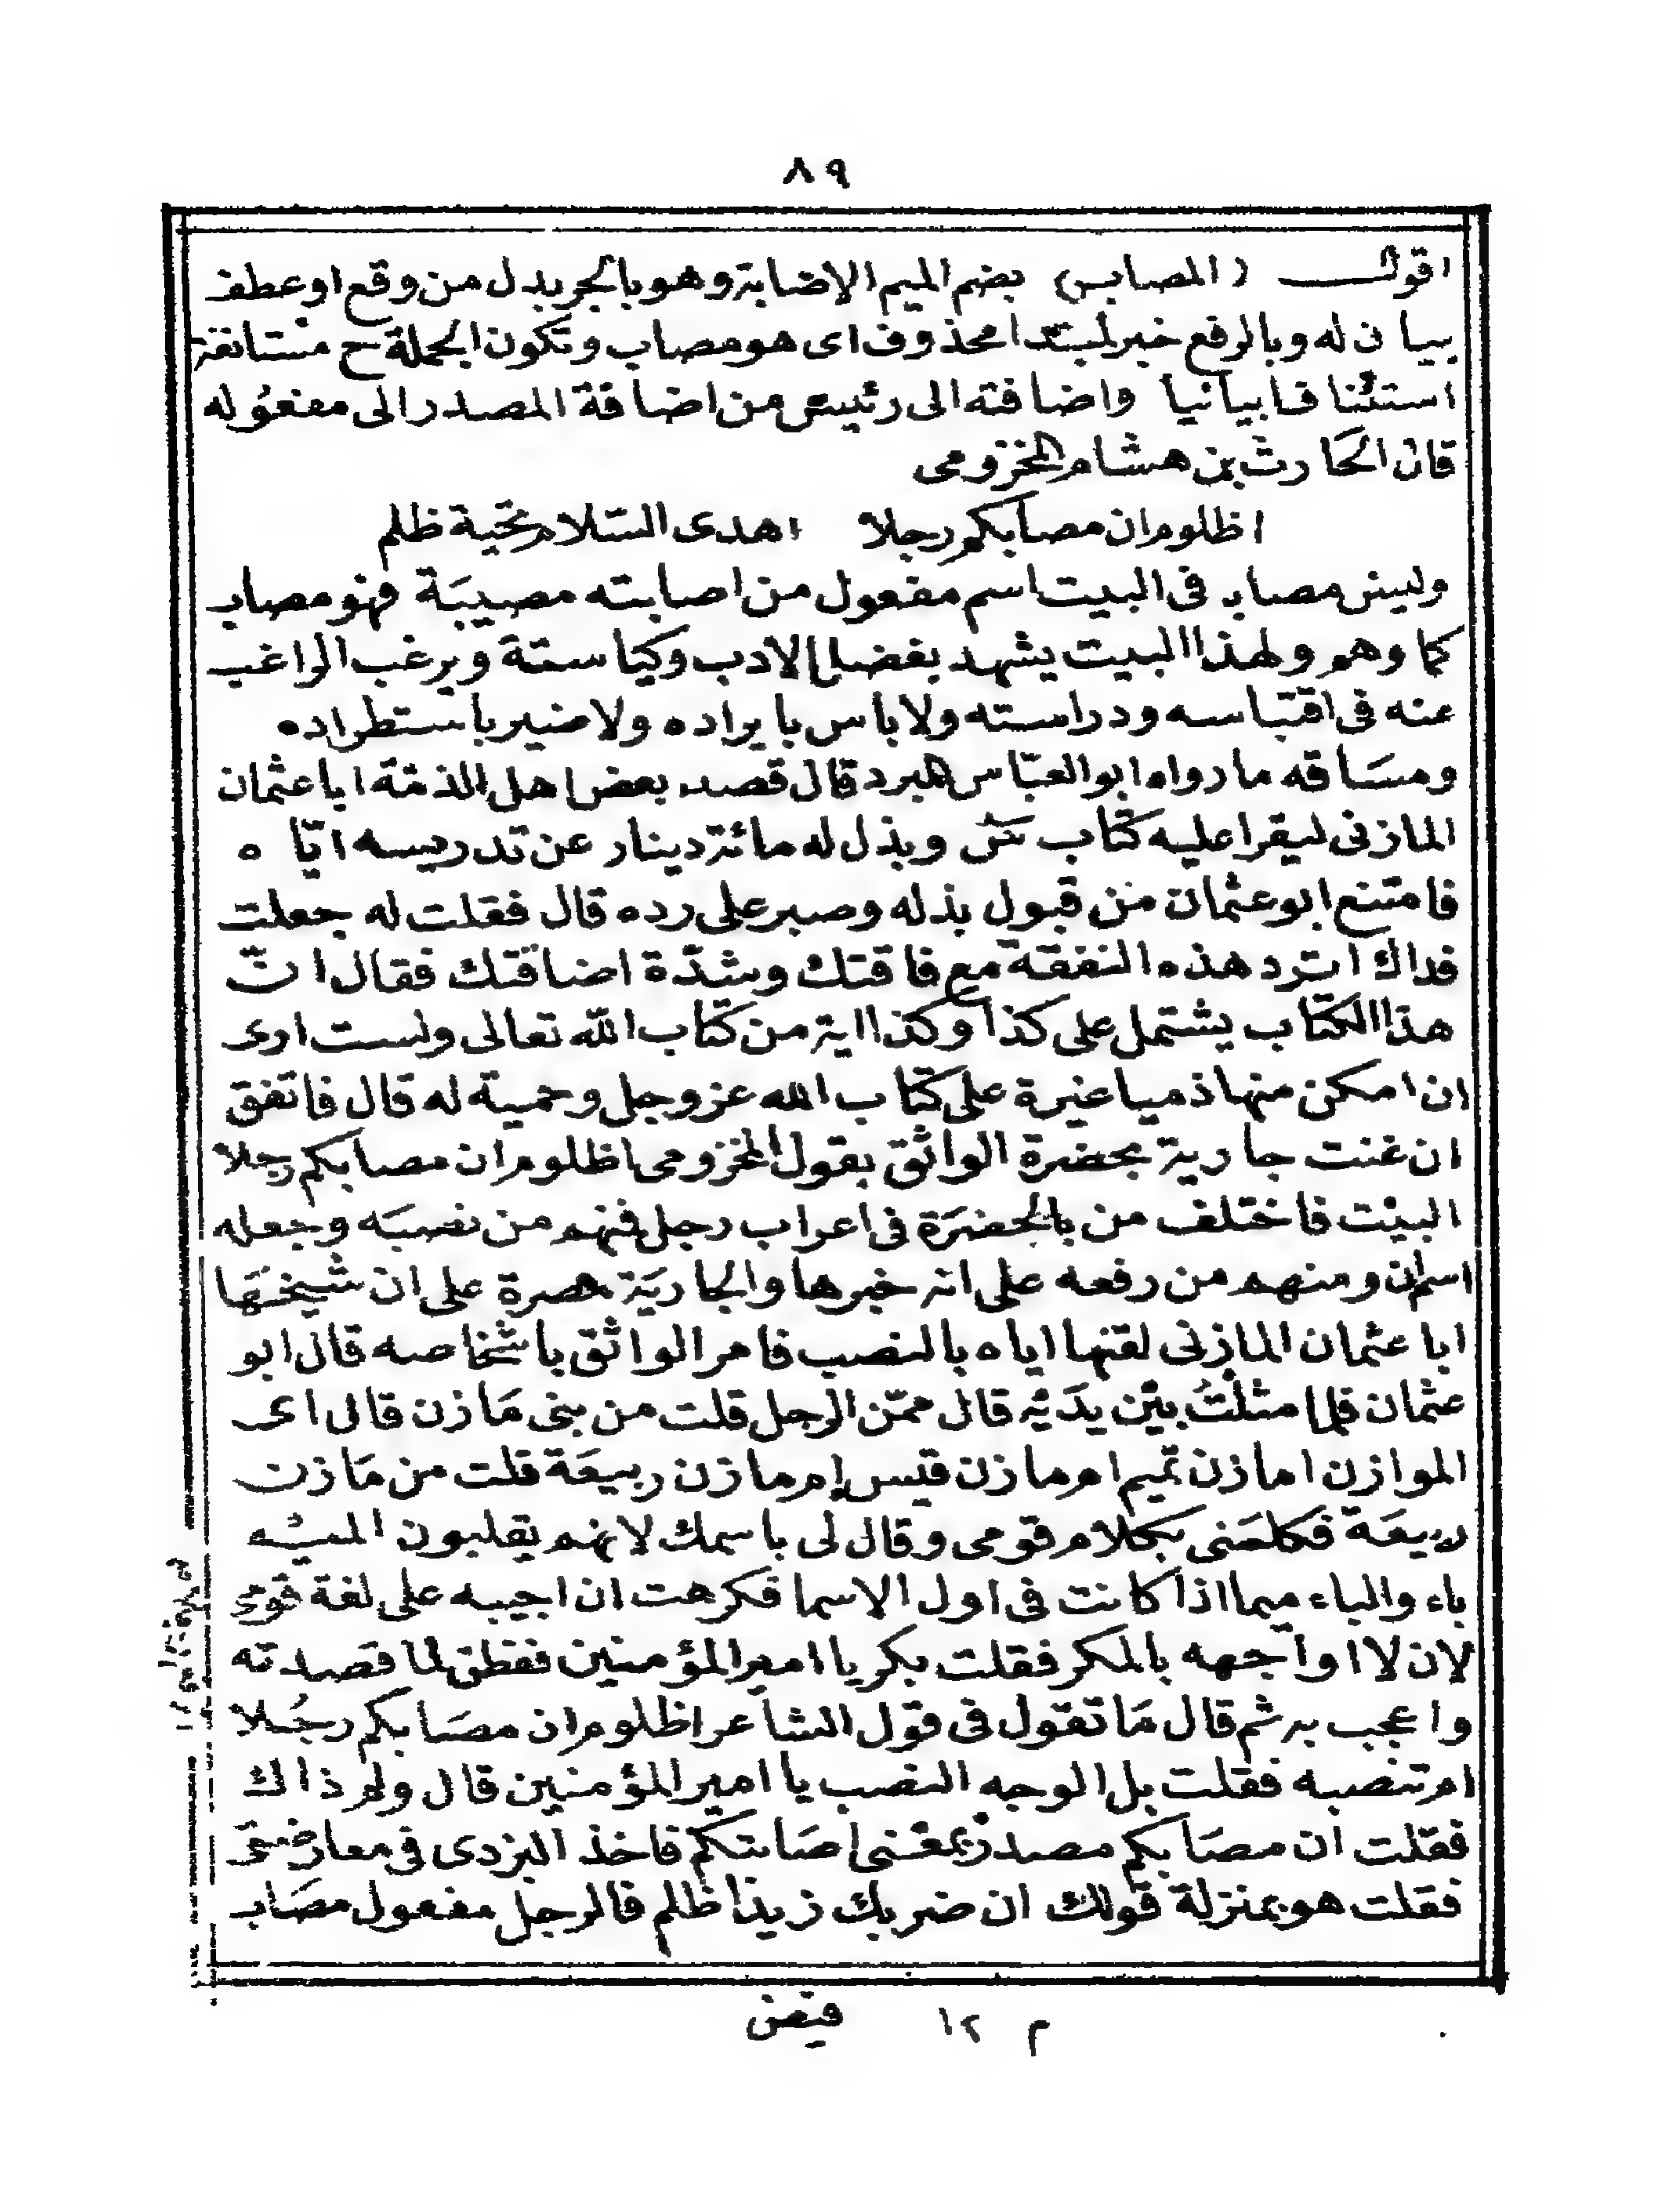 ٨٩
اقول (المصاب) بضم الميم الإضابة وهو بالجر بدل من وقع او عطف
بيا ن له وبالرفع خبر لمبتدا محذوف اى هو مصاب وتكون الجملة ح مستانفة
استئنا فا بيانيا واضافته الى رئيس من اضافة المصدر الى مفعوله
قال الحارث بن هشام المخزومى
اظلوم ان مصابكم رجلا اهدى السلام تحية ظلم
وليس مصاب فى البيت اسم مفعول من اصابته مصيبة فهو مصاب
كما وهم ولهذا البيت يشهد بفضل الادب وكياسته ويرغب الراغب
عنه فى اقتباسه ودراسته ولا باس بايراده ولا ضير باستطراده
ومساقه ما رواه ابو العباس المبرد قال قصد بعض اهل الذمة ابا عثمان
المازنى ليقرا عليه كتاب س وبذل له مائة دينار عن تدريسه ايّا ه
فامتنع ابو عثمان من قبول بذله وصبر على رده قال فقلت له جعلت
فداك اترد هذه النفقة مع فاقتك وشدّة اضاقتك فقال انّ
هذا الكتاب يشتمل على كذا وكذا اية من كتاب الله تعالى ولست ارى
ان امكن منها ذميا غيرة على كتاب الله عز وجل وحمية له قال فاتفق
ان غنت جارية بحضرة الواثق بقول المخزومى اظلوم ان مصابكم رجلا
البيت فاختلف من بالحضرة فى اعراب رجل فمنهم من نصبه وجعله
اسم ان ومنهم من رفعه على انه خبرها والجارية مصرة على ان شيخها
ابا عثمان المازنى لقنها اياه بالنصب فامر الواثق باشخاصه قال ابو
عثمان فلما مثلتُ بين يديه قال ممّن الرجل قلت من بنى مازن قال اى
الموازن امازن تميم ام مازن قيس ام مازن ربيعة قلت من مازن
ربيعة فكلمنى بكلام قومى وقال لى باسمك لانهم يقلبون الميم
باء والباء ميما اذا كانت فى اول الاسما فكرهت ان اجيبه على لغة قومى
لان لا اواجهه بالمكر فقلت بكر يا امير المؤمنين ففطن لما قصدته
واعجب به ثم قال ما تقول فى قول الشاعر اظلوم ان مصابكم رجُلا
ام تنصبه فقلت بل الوجه النصب يا امير المؤمنين قال ولم ذاك
فقلت ان مصابكم مصدر بمعنى اصابتكم فاخذ اليزدى فى معارضتى
فقلت هو بمنزلة قولك ان ضربك زيدا ظلم فالرجل مفعول مصاب
م ١٢ فيض